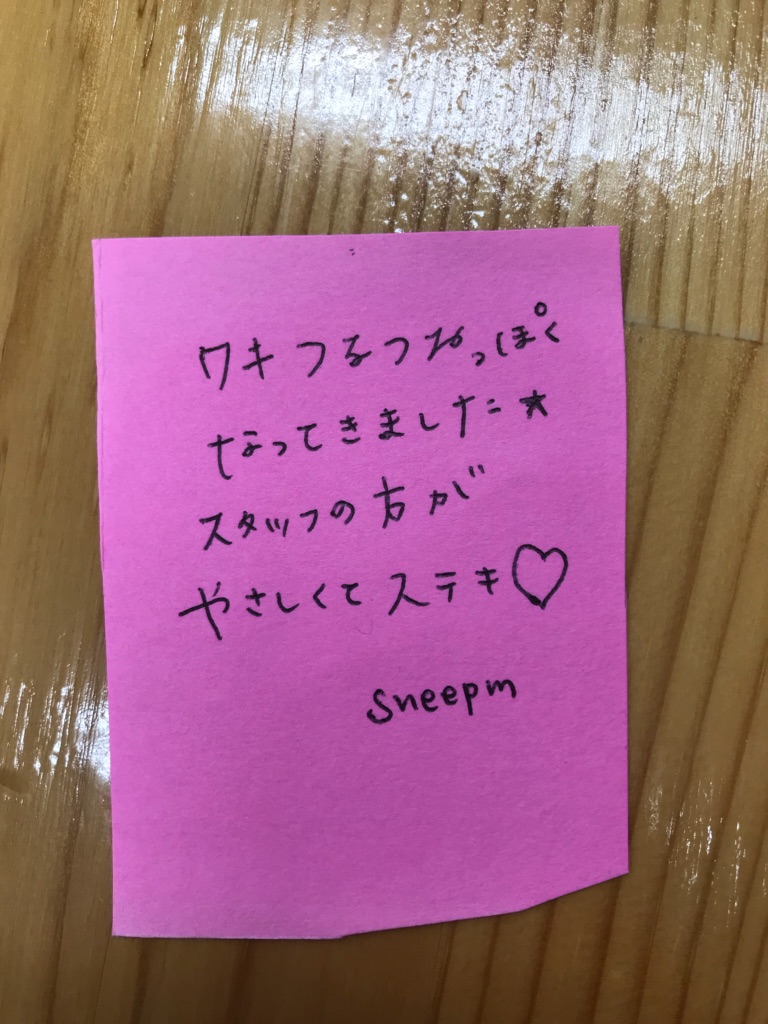 ワキつるつるっぽく
なってきました★
スタッフの方が
やさしくてステキ♡
sneepm